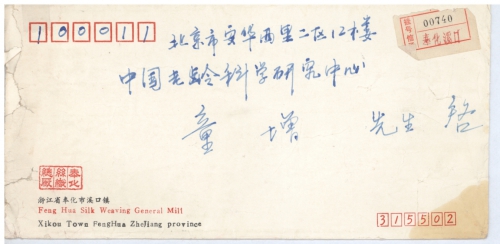 100011
北京市安华西里二区12楼
中国老龄科学研究中心
童增 先生 启
00740
奉化溪口
奉化
丝织
总厂
浙江省奉化市溪口镇
Feng Hua Silk Weaving General Mill
Xikou Town FengHua ZheJiang province
315502